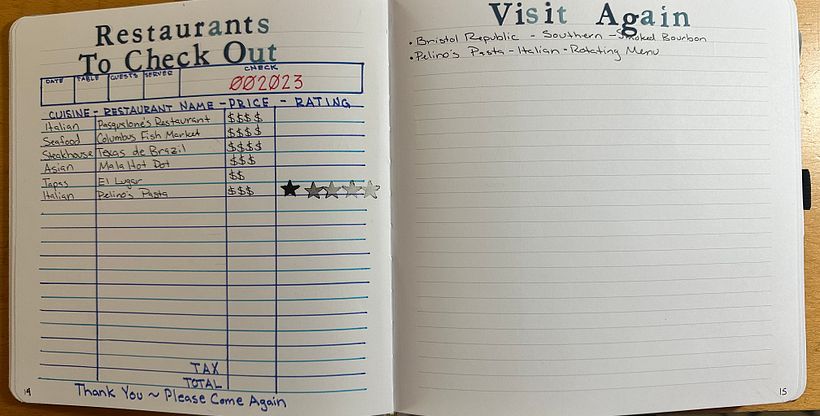 Restaurants
To Check Out
DATE TABLE GUESTS SERVER CHECK
002023
CUISINE - RESTAURANT NAME - PRICE - RATING
Italian Pasqualone's Restaurant $$$$
Seafood Columbus Fish Market $$$$
Steakhouse Texas de Brazil $$$$
Asian Mala Hot Dot $$$
Tapas El Lugar $$
Italian Pelino's Pasta $$$
TAX
TOTAL
Thank You ~ Please Come Again
14
Visit Again
• Bristol Republic - Southern - Smoked Bourbon
• Pelino's Pasta - Italian - Rotating Menu
15